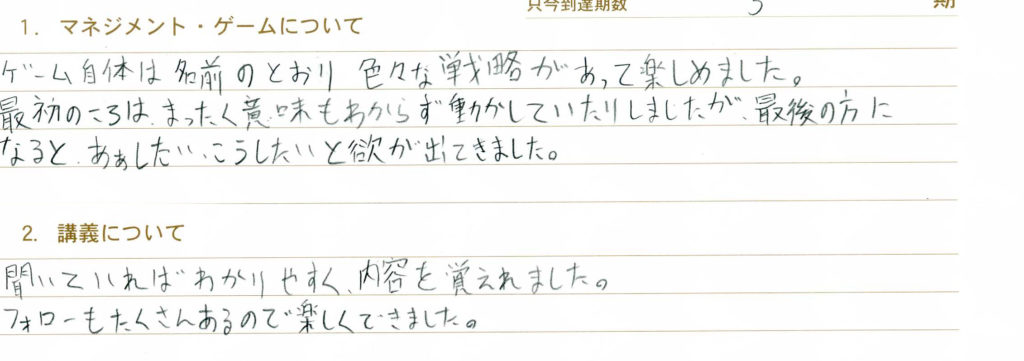 只今到達期数 3 期
1. マネジメント・ゲームについて
ゲーム自体は名前のとおり色々な戦略があって楽しめました。
最初のころは、まったく意味もわからず動かしていたりしましたが、最後の方に
なると、あぁしたい、こうしたいと欲が出てきました。
2. 講義について
聞いていればわかりやすく、内容を覚えれました。
フォローもたくさんあるので楽しくできました。